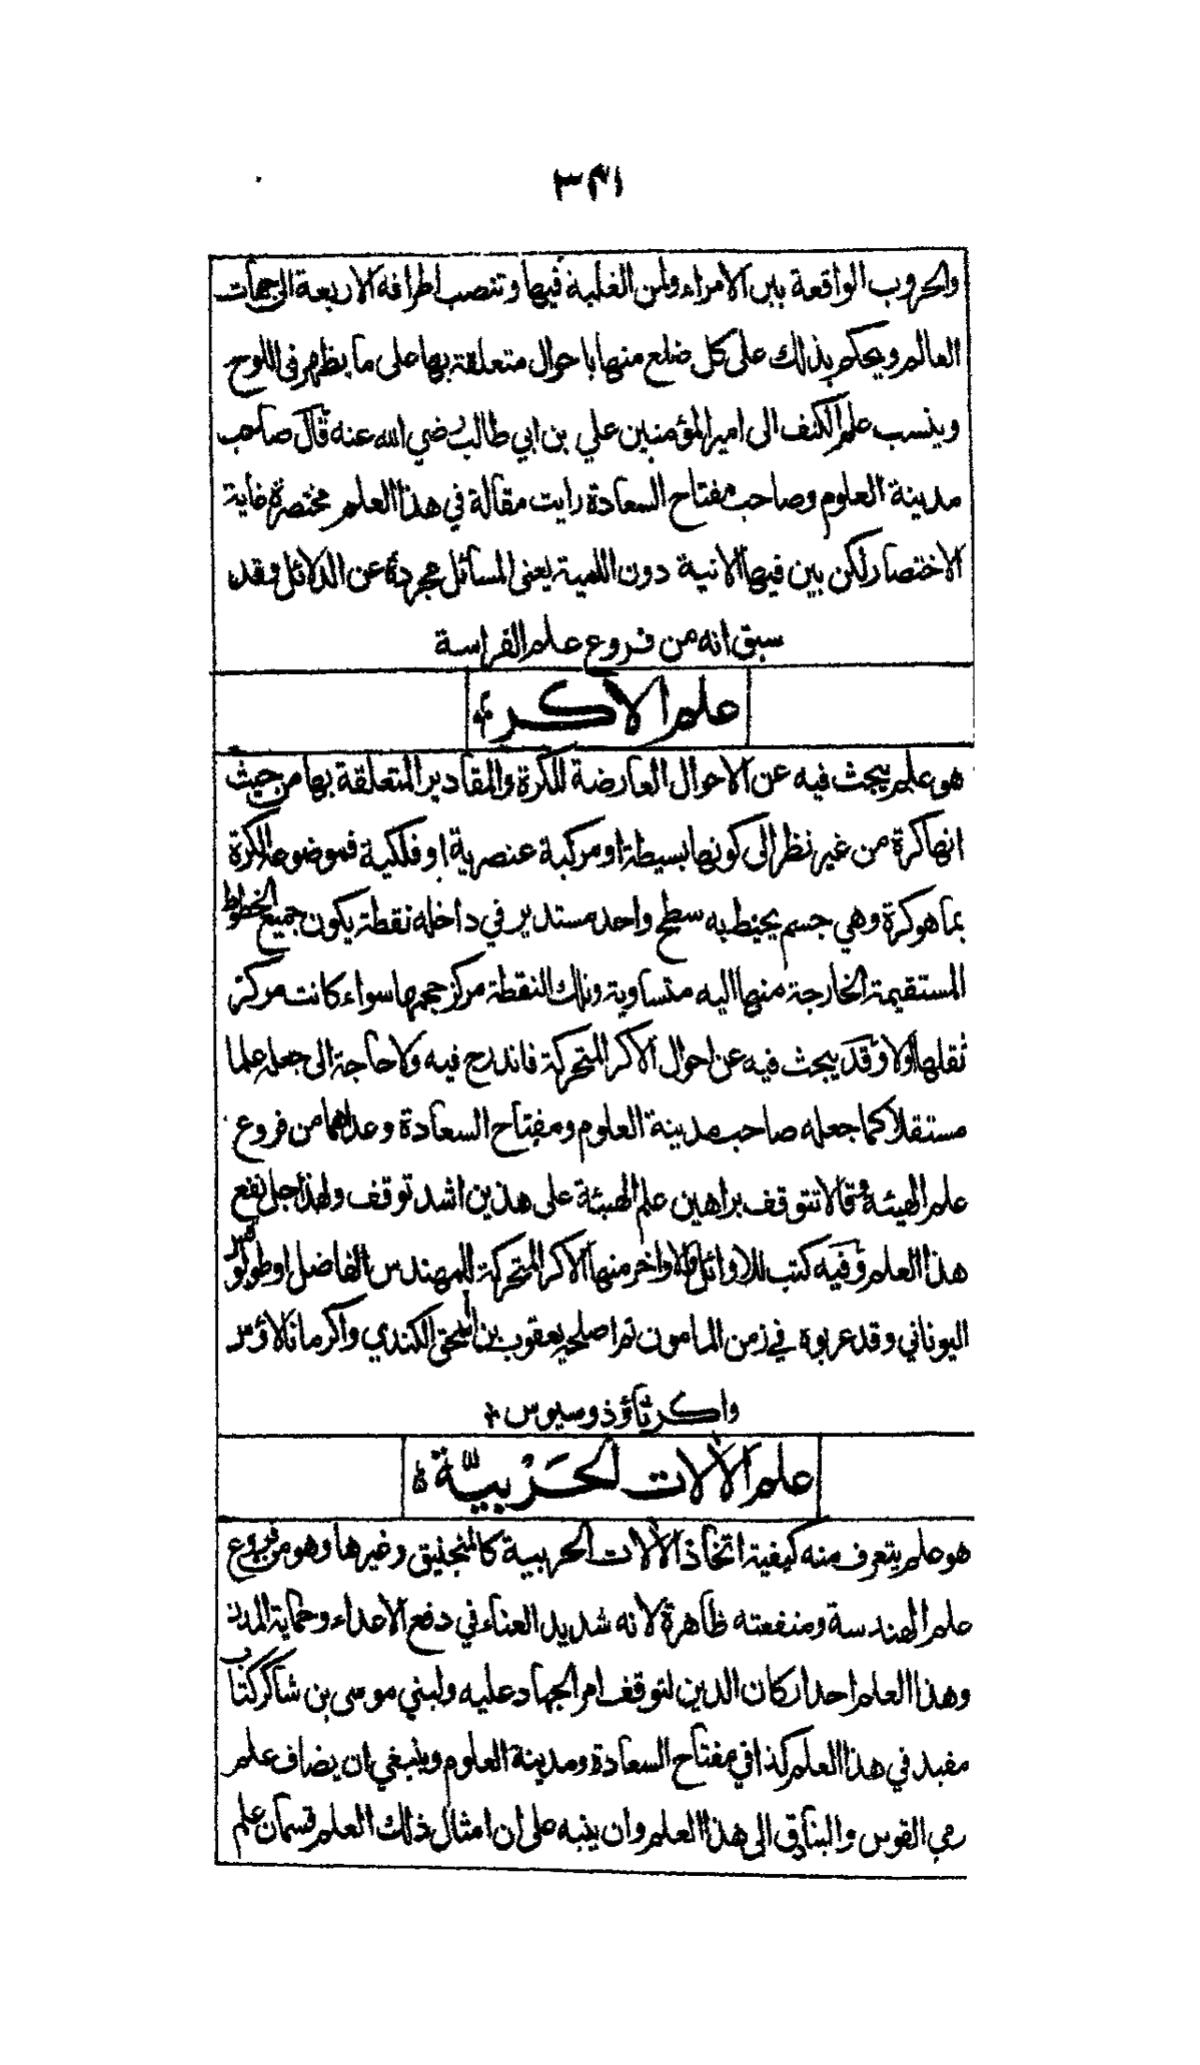 ۳۴۱
والحروب الواقعة بين الامراء ولمن الغلبة فيها وتنصب اطرافه الاربعة الى جهات
العالم ويحكم بذلك على كل ضلع منها باحوال متعلقة بها على ما يظهر فى اللوح
وينسب علم الكتف الى امير المؤمنين علي بن ابي طالب رضي الله عنه قال صاحب
مدينة العلوم وصاحب مفتاح السعادة رايت مقالة في هذا العلم مختصرة غاية
الاختصار لكن بين فيها الانية دون اللمية يعنى المسائل مجردة عن الدلائل وقد
سبق انه من فروع علم الفراسة
علم الاكر
هو علم يبحث فيه عن الاحوال العارضة للكرة والمقادير المتعلقة بها من حيث
انها كرة من غير نظر الى كونها بسيطة او مركبة عنصرية او فلكية فموضوعه الكرة
بما هو كرة وهي جسم يحيط به سطح واحد مستدير في داخله نقطة يكون جميع الخطوط
المستقيمة الخارجة منها اليه متساوية وتلك النقطة مركز حجمها سواء كانت مركز
ثقلها اولا وقد يبحث فيه عن احوال الاكر المتحركة فاندرج فيه ولا حاجة الى جعله علما
مستقلا كما جعله صاحب مدينة العلوم ومفتاح السعادة وعداهما من فروع
علم الهيئة وقالا تتوقف براهين علم الهيئة على هذين اشد توقف ولهذا جل نفع
هذا العلم وفيه كتب للاوائل والاواخر منها الاكر المتحركة للمهندس الفاضل اوطولوقس
اليوناني وقد عربوه في زمن المامون ثم اصلحه يعقوب بن اسحق الكندي واكر مانالاؤس
واكر ثاؤذوسيوس
علم الآلات الحَرْبيَّة
هو علم يتعرف منه كيفية اتخاذ الآلات الحربية كالمنجنيق وغيرها وهو من فروع
علم الهندسة ومنفعته ظاهرة لانه شديد العناء في دفع الاعداء وحماية المدن
وهذا العلم احد اركان الدين لتوقف امر الجهاد عليه ولبني موسى بن شاكر كتاب
مفيد في هذا العلم كذا في مفتاح السعادة ومدينة العلوم وينبغي ان يضاف علم
رمي القوس والبنادق الى هذا العلم وان ينبه على ان امثال ذلك العلم قسمان علم